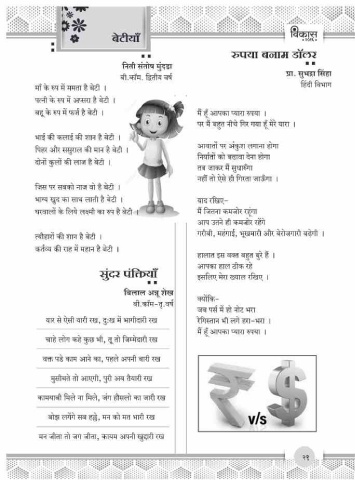 बेटीयाँ
निती संतोष मुंदडा
बी.कॉम. द्वितीय वर्ष
माँ के रुप में ममता है बेटी ।
पत्नी के रुप में अप्सरा है बेटी ।
बहू के रुप में फर्ज है बेटी ।
भाई की कलाई की शान है बेटी ।
पिहर और ससुराल की मान है बेटी ।
दोनों कुलों की लाज है बेटी ।
जिस पर सबको नाज वो है बेटी ।
भाग्य खुद का साथ लाती है बेटी ।
घरवालों के लिये लक्ष्मी का रुप है बेटी ।
त्यौहारों की शान है बेटी ।
कर्तव्य की राह में महान है बेटी ।
सुंदर पंक्तियाँ
बिलाल अन्नू शेख
बी.कॉम-तृ.वर्ष
यार से ऐसी यारी रख, दुःख में भागीदारी रख
चाहे लोग कहे कुछ भी, तू तो जिम्मेदारी रख
वक्त पड़े काम आने का, पहले अपनी बारी रख
मुसीबते तो आएगी, पुरी अब तैयारी रख
कामयाबी मिले ना मिले, जंग हौसलों का जारी रख
बोझ लगेंगे सब हल्के, मन को मत भारी रख
मन जीता तो जग जीता, कायम अपनी खुद्दारी रख
विकास
रुपया बनाम डॉलर
प्रा. सुभद्रा सिंहा
हिंदी विभाग
मैं हूँ आपका प्यारा रुपया ।
पर मैं बहुत नीचे गिर गया हूँ मेरे यारा ।
आयातों पर अंकुश लगाना होगा
निर्यातों को बढावा देना होगा
तब जाकर मैं सुधरूँगा
नहीं तो ऐसे ही गिरता जाऊँगा ।
याद रखिए-
मैं जितना कमजोर रहूंगा
आप उतने ही कमजोर रहेंगे
गरीबी, महंगाई, भूखमारी और बेरोजगारी बढेगी ।
हालात इस वक्त बहुत बुरे हैं ।
आपका हाल ठीक रहे
इसलिए मेरा ख्याल रखिए ।
क्योंकि-
जब पर्स में हो नोट भरा
रेगिस्तान भी लगे हरा-भरा ।
मैं हूँ आपका प्यारा रुपया ।
₹ v/s $
२९